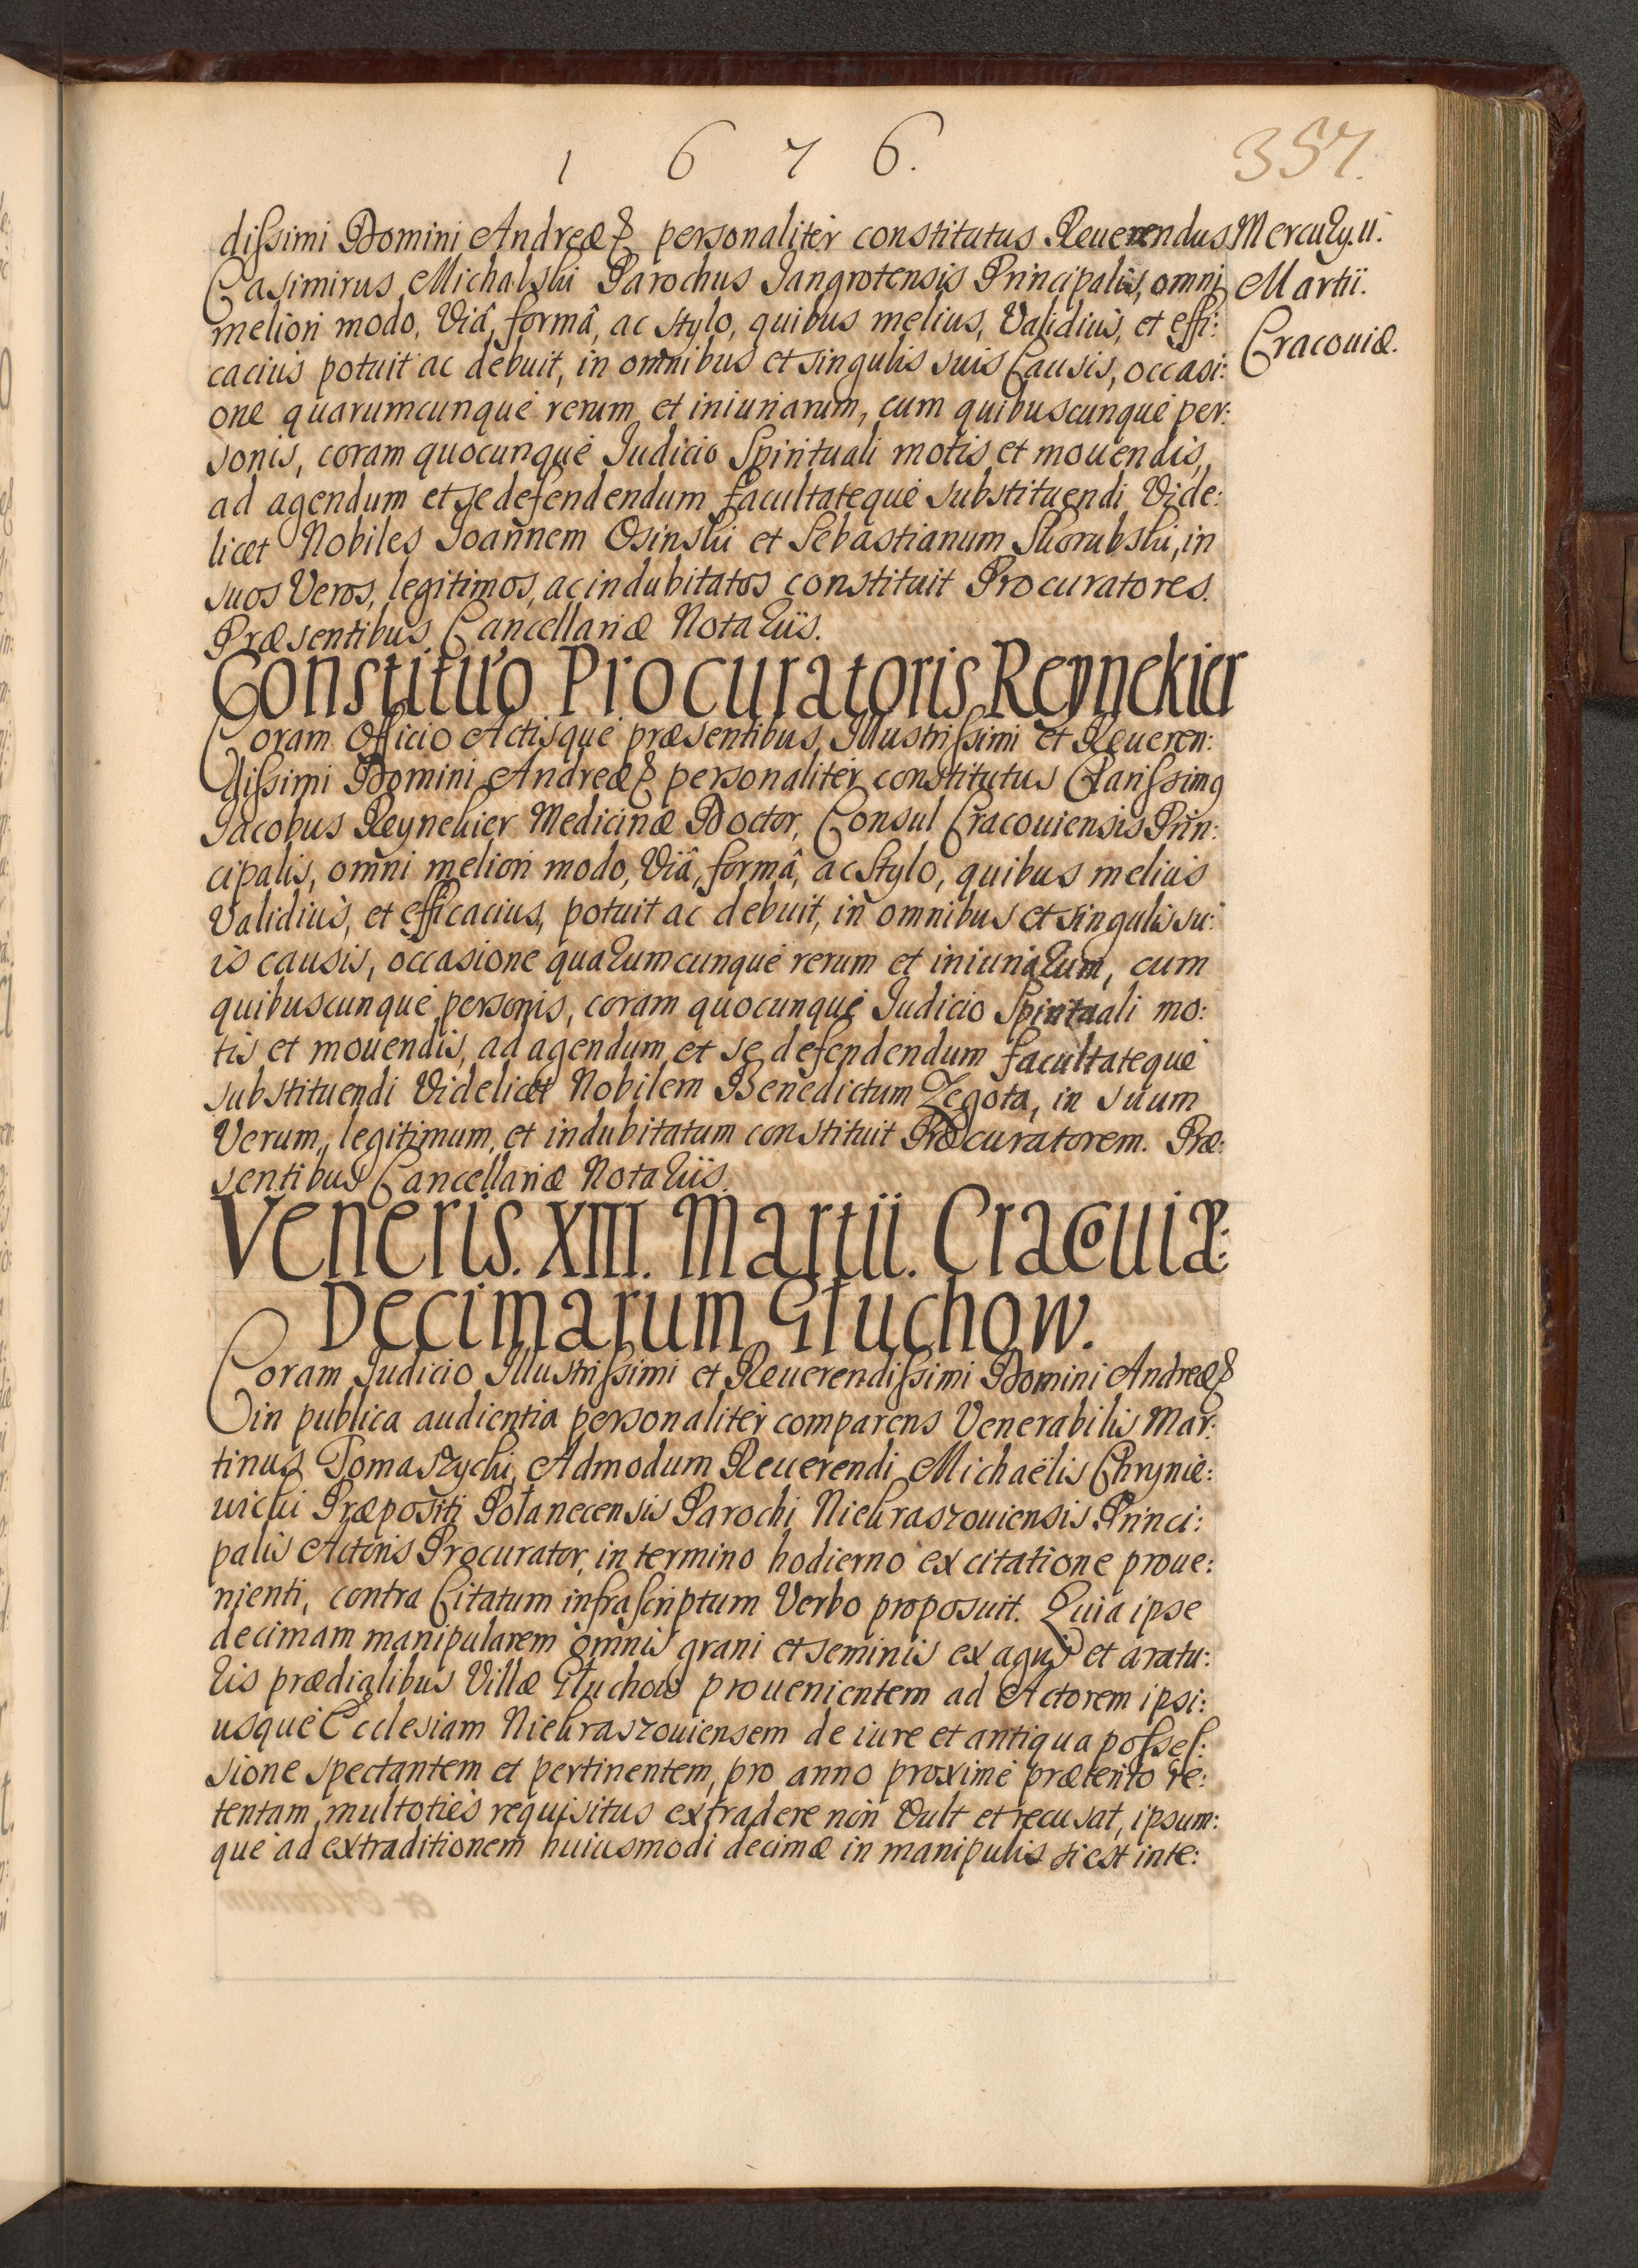 1 6 7 6.
357.
dissimi Domini Andreæ & personaliter constitutus Reuerendus
Mercurÿ. 11.
Martii.
Cracouiæ.
Casimirus Michalski Parochus Jangrotensis Principalis, omni
meliori modo, Viâ, formâ, ac stylo, quibus melius, Validius, et effi:
cacius potuit ac debuit, in omnibus et singulis suis Causis, occasi:
one quarumcunque rerum et iniuriarum, cum quibuscunque per:
sonis, coram quocunque Judicio Spirituali motis et mouendis,
ad agendum et se defendendum facultateque substituendi Vide:
licet Nobiles Joannem Osinski et Sebastianum Skorubski, in
suos Veros, legitimos, ac indubitatos constituit Procuratores.
Præsentibus Cancellariæ Notariis.
Constituo Procuratoris Reynekier
Coram Officio Actisque præsentibus Illustrissimi et Reueren:
dissimi Domini Andreæ & personaliter constitutus Clarissimus
Jacobus Reynekier Medicinæ Doctor, Consul Cracouiensis Prin:
cipalis, omni meliori modo, Viâ, formâ, ac Stylo, quibus melius
Validius, et efficacius, potuit ac debuit, in omnibus et singulis su:
is causis, occasione quarumcunque rerum et iniuriarum, cum
quibuscunque personis, coram quocunque Judicio Spirituali mo:
tis et mouendis, ad agendum et se defendendum facultateque
substituendi Videlicet Nobilem Benedictum Zegota, in suum
Verum, legitimum, et indubitatum constituit Procuratorem. Præ:
sentibus Cancellariæ Notariis.
Veneris. XIII. Martii. Cracouiæ:
Decimarum Głuchow.
Coram Judicio Illustrissimi et Reuerendissimi Domini Andreæ &
in publica audientia personaliter comparens Venerabilis Mar:
tinus Tomaszycki Admodum Reuerendi Michaëlis Chrynie:
wicki Præpositi Połanecensis Parochi Niekraszouiensis Princi:
palis Actoris Procurator, in termino hodierno ex citatione proue:
nienti, contra Citatum infrascriptum Verbo proposuit. Quia ipse
decimam manipularem omnis grani et seminis ex agris et aratu:
ris prædialibus Villæ Głuchow prouenientem ad Actorem ipsi:
usque Ecclesiam Niekraszouiensem de iure et antiqua posses:
sione spectantem et pertinentem, pro anno proxime præterito re:
tentam multoties requisitus extradere non Vult et recusat, ipsum:
que ad extraditionem huiusmodi decimæ in manipulis si est inte: